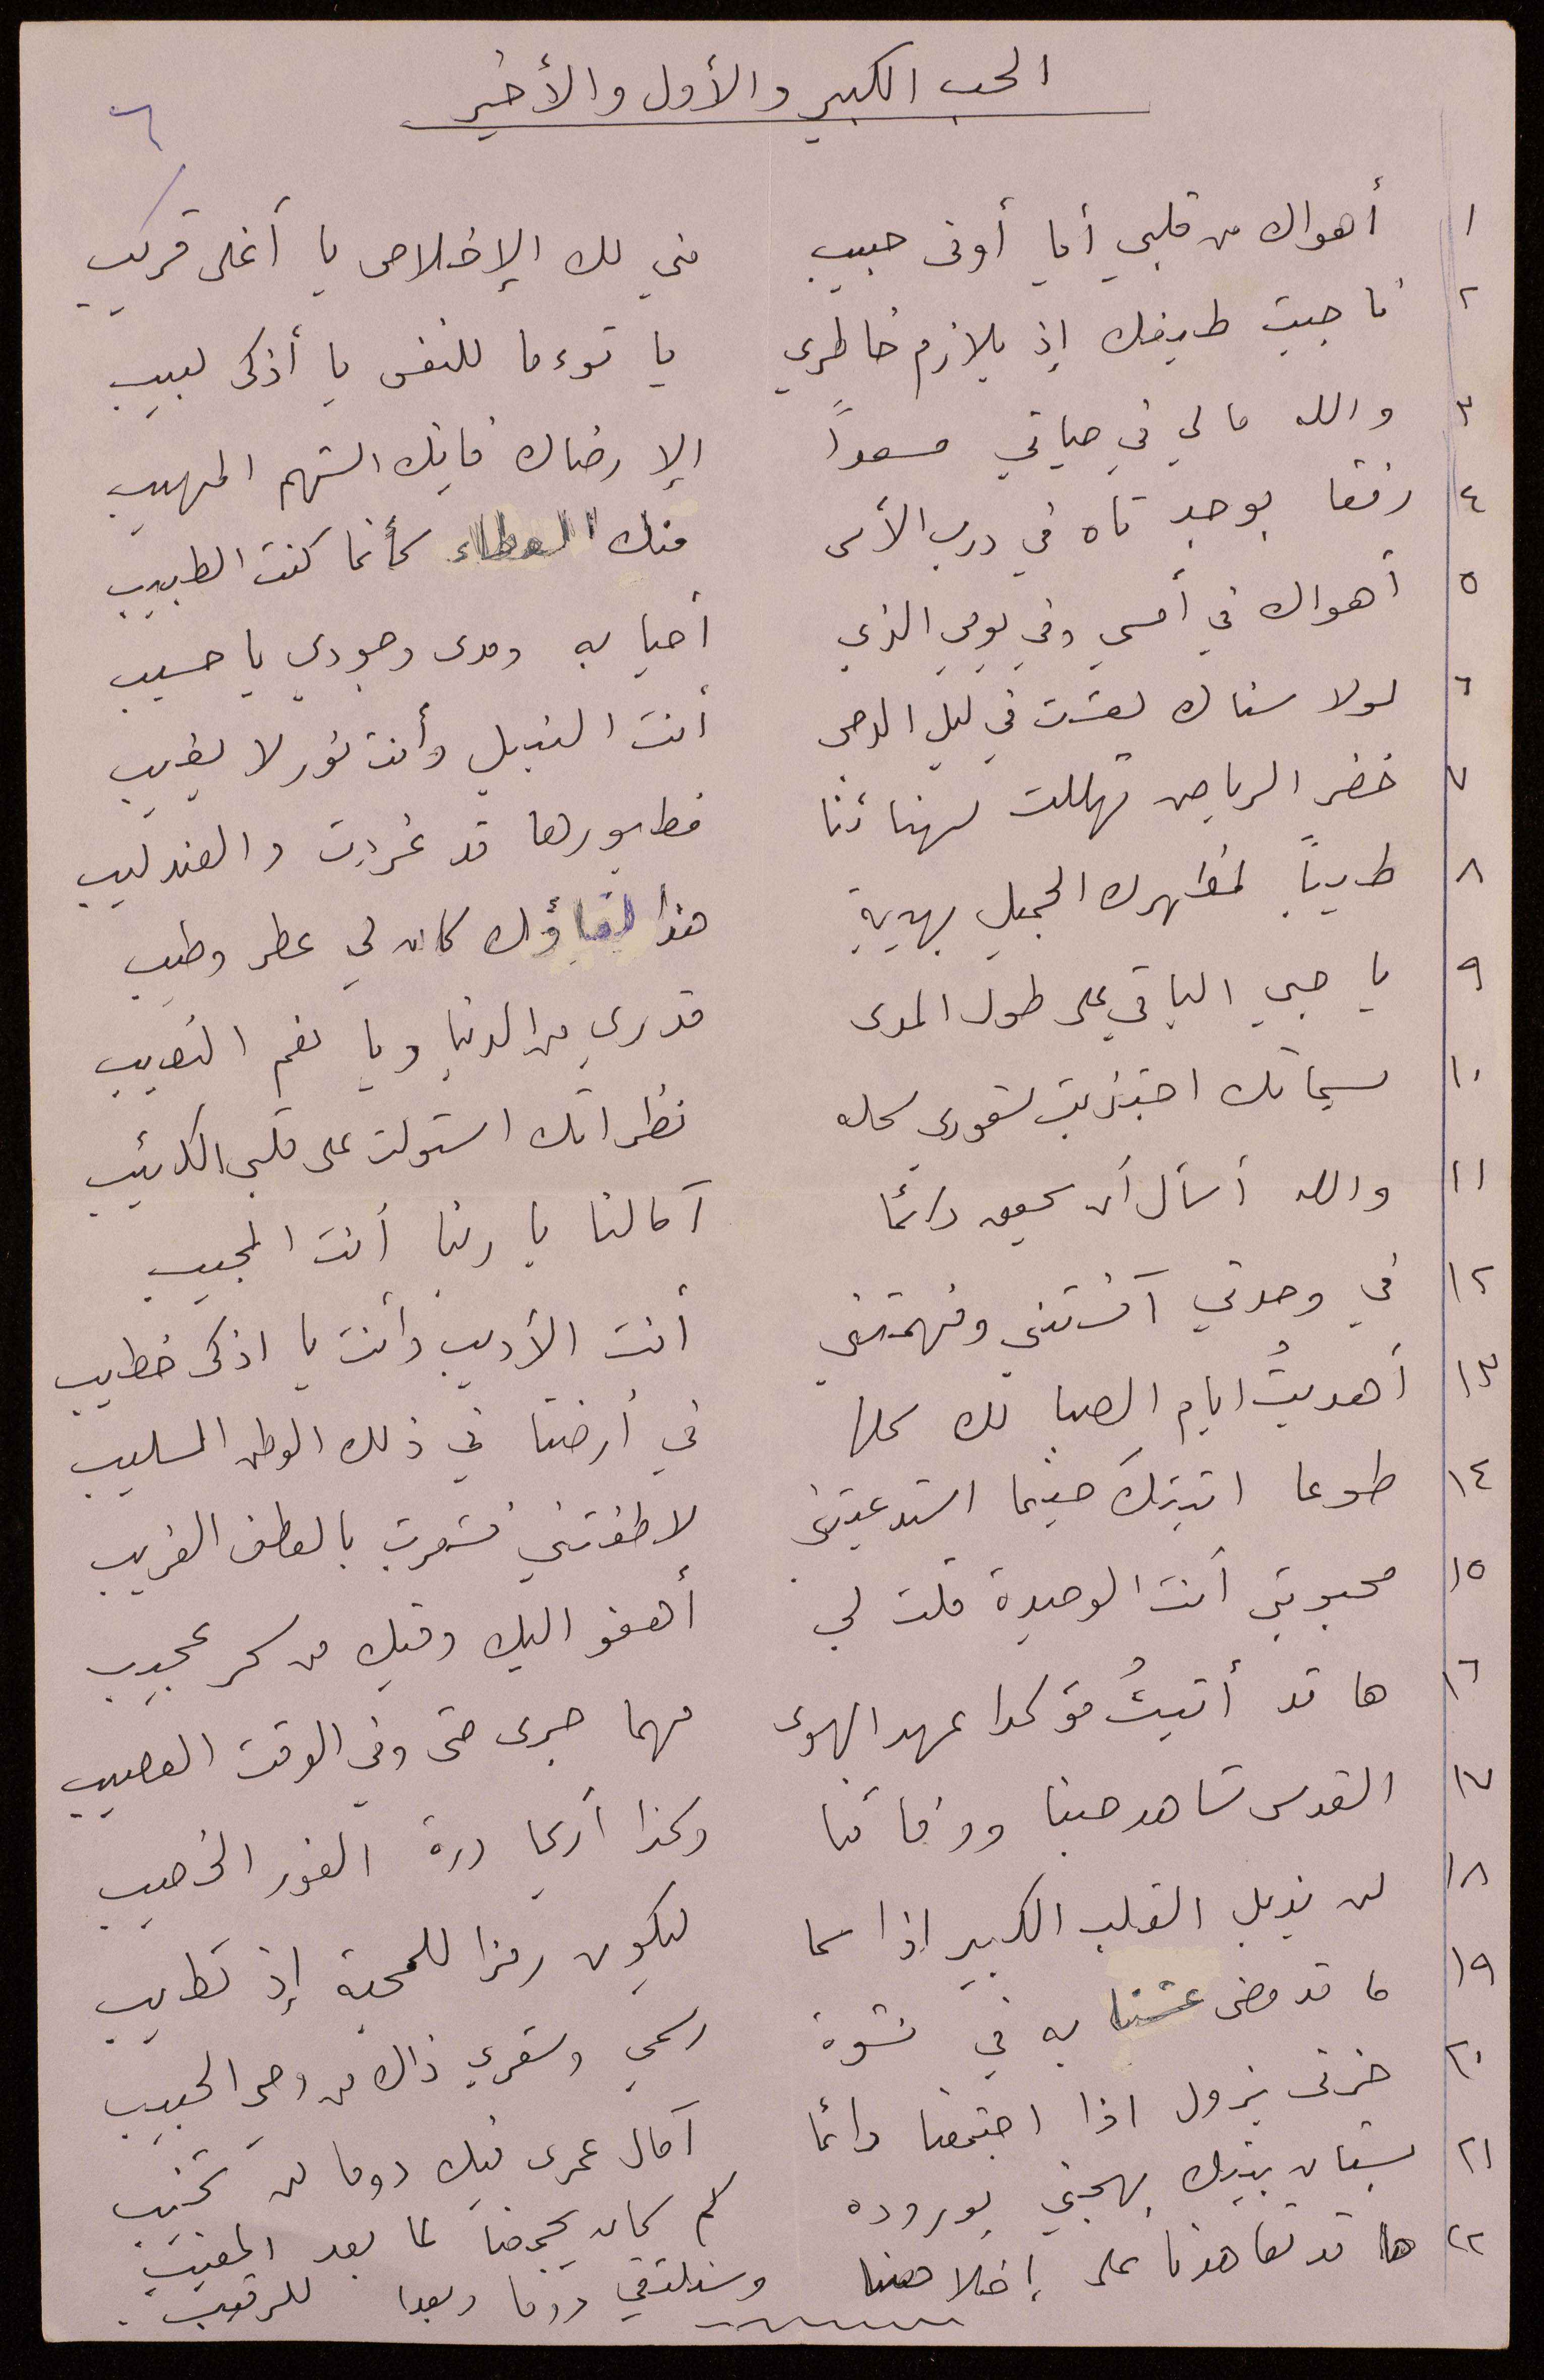 الحب الكبير والأول والأخير
٦
١ أهواك من قلبي أيا أوفى حبيب مني لك الإخلاص يا أغلى قريب
٢ ناجيت طيفك إذ يلازم خاطري يا توءما للنفس يا أذكى لبيب
٣ والله ما لي في حياتي مسعداً إلا رضاك فإنك الشهم المهيب
٤ رفقا بوجد تاه في درب الأسى منك العطاء كأنما كنت الطبيب
٥ أهواك في أمسي وفي يومي الذي أحيا به ومدى وجودي يا حسيب
٦ لولا سناك لعشت في ليل الدجى أنت النبيل وأنت نور لا يغيب
٧ خضر الرياض تهللت لهنائنا فطيورها قد غردت والعندليب
٨ طرباً لمظهرك الجميل بهدية هذا لقاؤك كان لي عطر وطيب
٩ يا حبي الباقي على طول المدى قدري من الدنيا ويا نعم النصيب
١٠ بسماتك اجتذبت شعوري كله نظراتك استولت على قلبي الكئيب
١١ والله أسأل أن يحقق دائما آمالنا يا ربنا أنت المجيب
١٢ في وحدتي آنستني وفهمتني أنت الأديب وأنت يا اذكى خطيب
١٣ أهديتُ ايام الصبا لك كلها في أرضنا في ذلك الوطن السليب
١٤ طوعا اتيتكَ حينما استدعيتني لاطفتني فشعرت بالعطف الغريب
١٥ محبوبتي أنت الوحيدة قلت لي أهفو اليك وفيك من سحر عجيب
١٦ ها قد أتيتُ مؤكدا عهد الهوى مهما جرى حتى وفي الوقت العصيب
١٧ القدس شاهد حبنا ووفائنا وكذا أريحا درة الغور الخصيب
١٨ لن يذبل القلب الكبير اذا سما ليكون رمزا للمحبة إذ تطيب
١٩ ما قد مضى عشنا به في نشوة رسمي وشعري ذاك من وحي الحبيب
٢٠ حزني يزول اذا اجتمعنا دائما آمال عمري فيك دوما لن تخيب
٢١ بستان بيتك بهجتي بوروده كم كان يجمعنا لما بعد المغيب
٢٢ ها قد تعاهدنا على إخلاصنا وسنلتقي دوما وبعدا للرقيب.